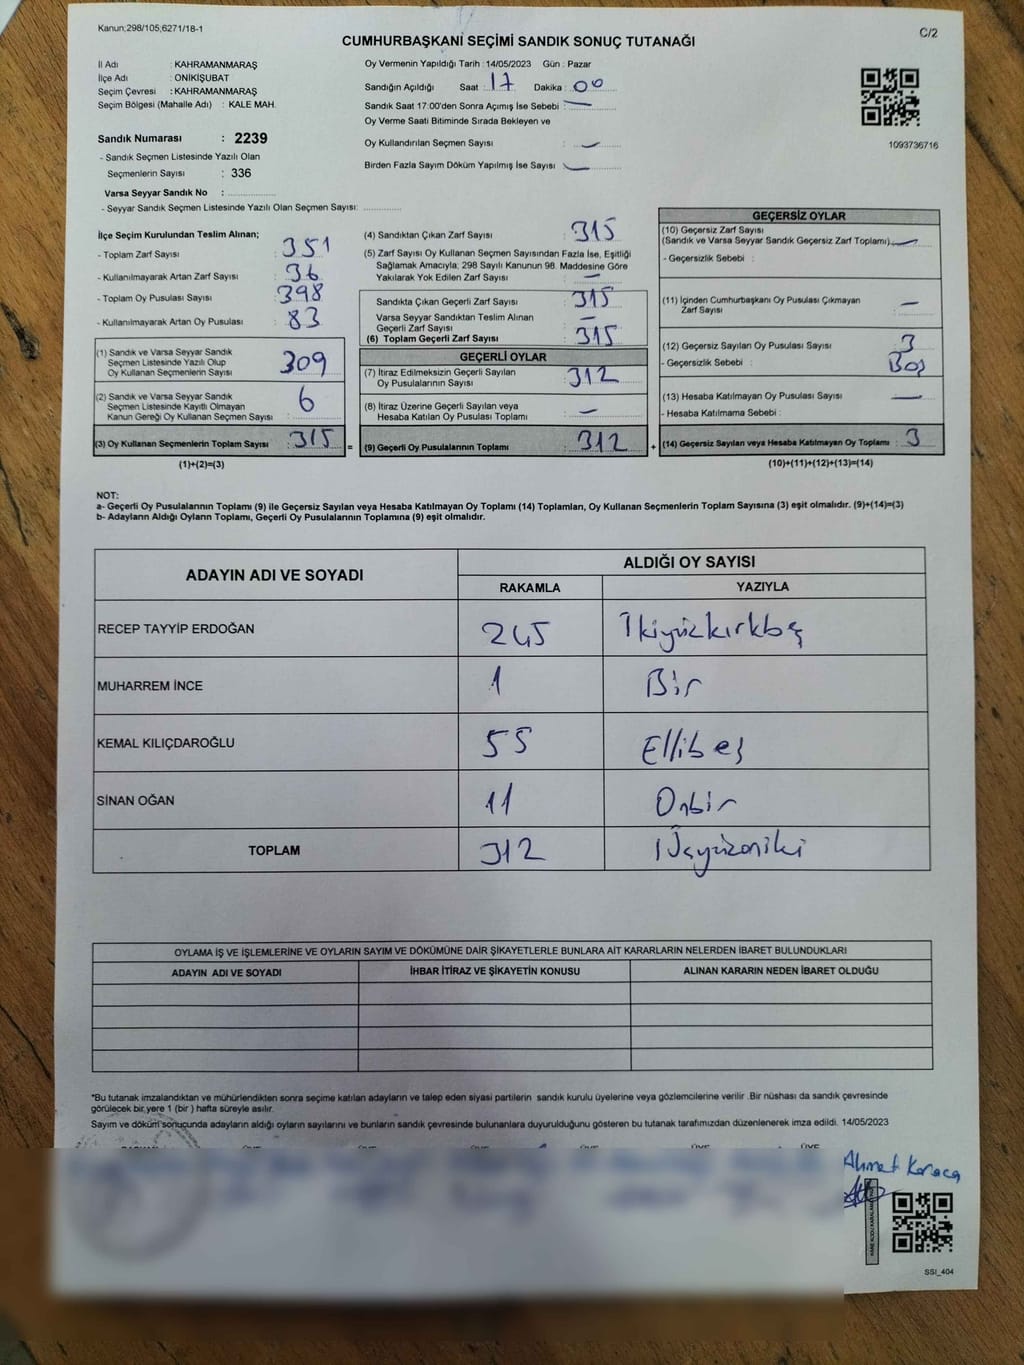 Kanun;298/105;6271/18-1
C/2
CUMHURBAŞKANI SEÇİMİ SANDIK SONUÇ TUTANAĞI
İl Adı : KAHRAMANMARAŞ
İlçe Adı : ONİKİŞUBAT
Seçim Çevresi : KAHRAMANMARAŞ
Seçim Bölgesi (Mahalle Adı) : KALE MAH.
Sandık Numarası : 2239
- Sandık Seçmen Listesinde Yazılı Olan
Seçmenlerin Sayısı : 336
Varsa Seyyar Sandık No :
- Seyyar Sandık Seçmen Listesinde Yazılı Olan Seçmen Sayısı:
Oy Vermenin Yapıldığı Tarih : 14/05/2023 Gün : Pazar
Sandığın Açıldığı Saat : 17 Dakika : 00
Sandık Saat 17:00'den Sonra Açımış İse Sebebi : —
Oy Verme Saati Bitiminde Sırada Bekleyen ve
Oy Kullandırılan Seçmen Sayısı : —
Birden Fazla Sayım Döküm Yapılmış İse Sayısı : —
1093736716
İlçe Seçim Kurulundan Teslim Alınan;
- Toplam Zarf Sayısı : 351
- Kullanılmayarak Artan Zarf Sayısı : 36
- Toplam Oy Pusulası Sayısı : 398
- Kullanılmayarak Artan Oy Pusulası : 83
(1) Sandık ve Varsa Seyyar Sandık
Seçmen Listesinde Yazılı Olup
Oy Kullanan Seçmenlerin Sayısı : 309
(2) Sandık ve Varsa Seyyar Sandık
Seçmen Listesinde Kayıtlı Olmayan
Kanun Gereği Oy Kullanan Seçmen Sayısı : 6
(3) Oy Kullanan Seçmenlerin Toplam Sayısı : 315 =
(1)+(2)=(3)
(4) Sandıktan Çıkan Zarf Sayısı : 315
(5) Zarf Sayısı Oy Kullanan Seçmen Sayısından Fazla İse, Eşitliği
Sağlamak Amacıyla; 298 Sayılı Kanunun 98. Maddesine Göre
Yakılarak Yok Edilen Zarf Sayısı : —
Sandıkta Çıkan Geçerli Zarf Sayısı : 315
Varsa Seyyar Sandıktan Teslim Alınan
Geçerli Zarf Sayısı : —
(6) Toplam Geçerli Zarf Sayısı : 315
GEÇERLİ OYLAR
(7) İtiraz Edilmeksizin Geçerli Sayılan
Oy Pusulalarının Sayısı : 312
(8) İtiraz Üzerine Geçerli Sayılan veya
Hesaba Katılan Oy Pusulaları Toplamı : —
(9) Geçerli Oy Pusulalarının Toplamı : 312 +
GEÇERSİZ OYLAR
(10) Geçersiz Zarf Sayısı
(Sandık ve Varsa Seyyar Sandık Geçersiz Zarf Toplamı) : —
- Geçersizlik Sebebi :
(11) İçinden Cumhurbaşkanı Oy Pusulası Çıkmayan
Zarf Sayısı : —
(12) Geçersiz Sayılan Oy Pusulası Sayısı : 3
- Geçersizlik Sebebi : Boş
(13) Hesaba Katılmayan Oy Pusulası Sayısı : —
- Hesaba Katılmama Sebebi :
(14) Geçersiz Sayılan veya Hesaba Katılmayan Oy Toplamı : 3
(10)+(11)+(12)+(13)=(14)
NOT:
a- Geçerli Oy Pusulalarının Toplamı (9) ile Geçersiz Sayılan veya Hesaba Katılmayan Oy Toplamı (14) Toplamları, Oy Kullanan Seçmenlerin Toplam Sayısına (3) eşit olmalıdır. (9)+(14)=(3)
b- Adayların Aldığı Oyların Toplamı, Geçerli Oy Pusulalarının Toplamına (9) eşit olmalıdır.
ADAYIN ADI VE SOYADI ALDIĞI OY SAYISI
RAKAMLA YAZIYLA
RECEP TAYYİP ERDOĞAN 245 İkiyüzkırkbeş
MUHARREM İNCE 1 Bir
KEMAL KILIÇDAROĞLU 55 Ellibeş
SİNAN OĞAN 11 Onbir
TOPLAM 312 Üçyüzoniki
OYLAMA İŞ VE İŞLEMLERİNE VE OYLARIN SAYIM VE DÖKÜMÜNE DAİR ŞİKAYETLERLE BUNLARA AİT KARARLARIN NELERDEN İBARET BULUNDUKLARI
ADAYIN ADI VE SOYADI İHBAR İTİRAZ VE ŞİKAYETİN KONUSU ALINAN KARARIN NEDEN İBARET OLDUĞU
*Bu tutanak imzalandıktan ve mühürlendikten sonra seçime katılan adayların ve talep eden siyasi partilerin sandık kurulu üyelerine veya gözlemcilerine verilir .Bir nüshası da sandık çevresinde
görülecek bir yere 1 (bir ) hafta süreyle asılır.
Sayım ve döküm sonucunda adayların aldığı oyların sayılarını ve bunların sandık çevresinde bulunanlara duyurulduğunu gösteren bu tutanak tarafımızdan düzenlenerek imza edildi. 14/05/2023
Ahmet Karaca
SSI_404